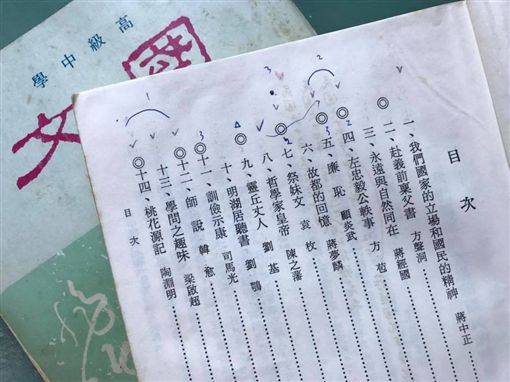 高級中學
國文
目次
一、我們國家的立場和國民的精神 蔣中正
二、赴義前稟父書 方聲洞
三、永遠與自然同在 蔣經國
四、左忠毅公軼事 方苞
五、廉恥 顧炎武
六、故都的回憶 蔣夢麟
七、祭妹文 袁枚
八、哲學家皇帝 陳之藩
九、靈丘丈人 劉基
十、明湖居聽書 劉鶚
十一、訓儉示康 司馬光
十二、師說 韓愈
十三、學問之趣味 梁啟超
十四、桃花源記 陶淵明
目次